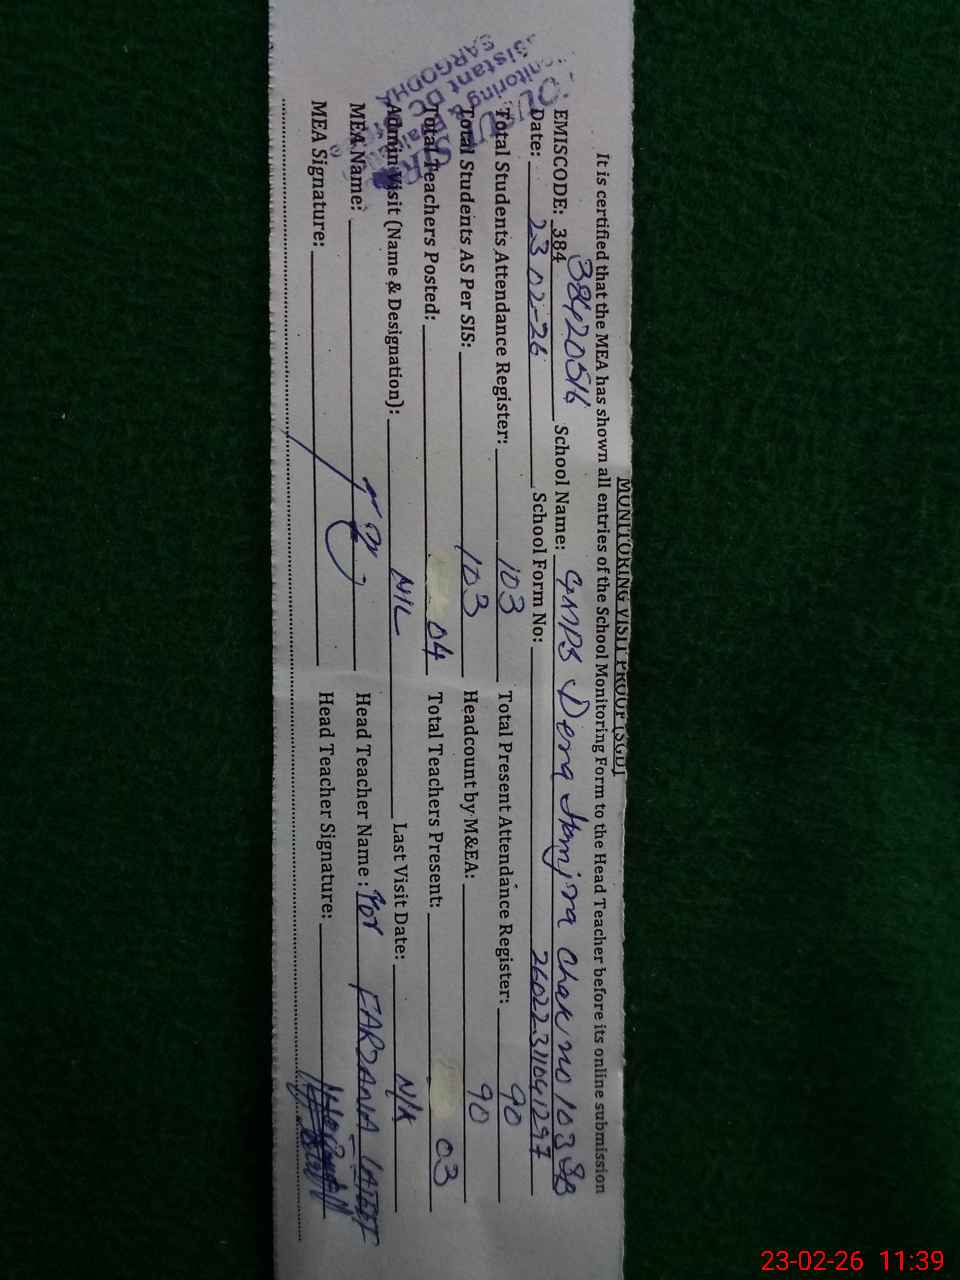 MONITORING VISIT PROOF (SGD)
It is certified that the MEA has shown all entries of the School Monitoring Form to the Head Teacher before its online submission
EMISCODE: 384 38420516 School Name: GMPS Dera Hamjra Chak no 103 SB
Date: 23 02-26 School Form No: 26022311041297
Total Students Attendance Register: 103 Total Present Attendance Register: 90
Total Students AS Per SIS: 103 Headcount by M&EA: 90
Total Teachers Posted: 04 Total Teachers Present: 03
Admin Visit (Name & Designation): NIL Last Visit Date: N/A
MEA Name: Head Teacher Name: For FARZANA
MEA Signature: Head Teacher Signature:
SARGODHA
23-02-26 11:39